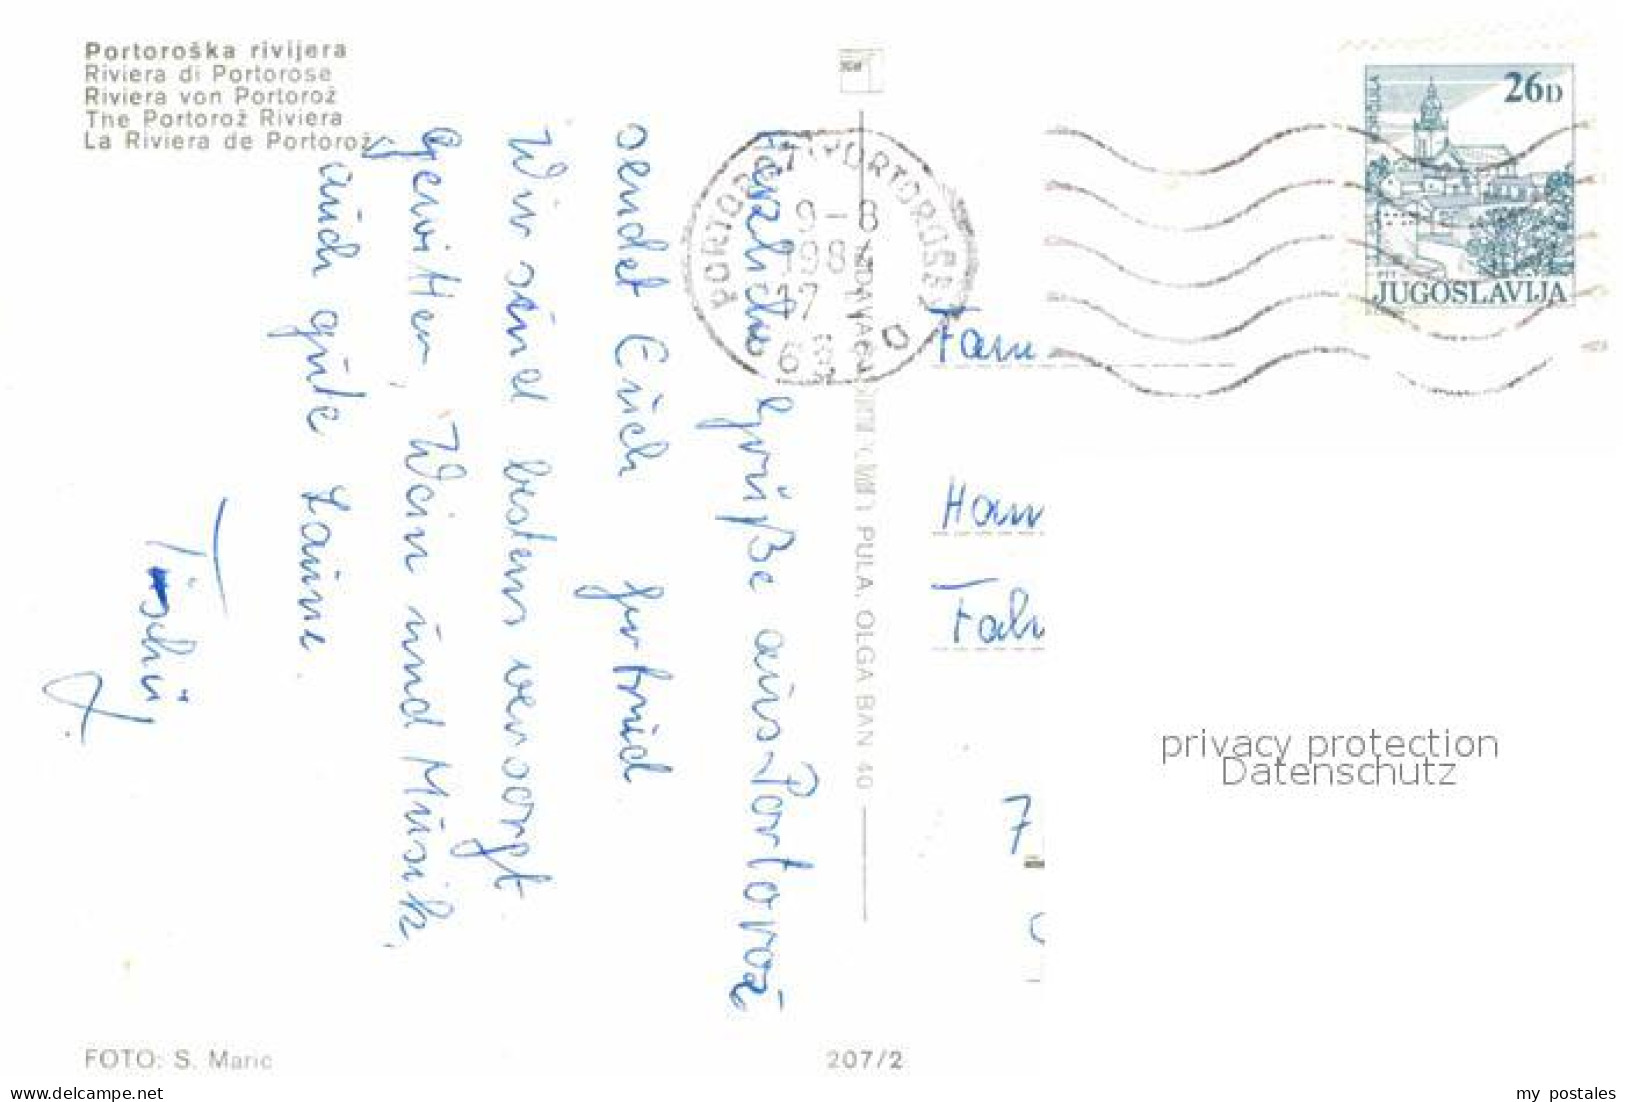 Portoroška rivijera
Riviera di Portorose
Riviera von Portorož
The Portorož Riviera
La Riviera de Portorož
Herzliche Grüße aus Portorož
sendet Euch Gertrud
Wir sind bestens versorgt.
Gewitter, Wein und Musik,
auch gute Laune.
26D
KORČULA
PTT
JUGOSLAVIJA
PORTOROSE
9-8
17
6
Fam
Ham
7
PULA, OLGA BAN 40
privacy protection
Datenschutz
FOTO: S. Maric
207/2
delcampe.net
my_postales